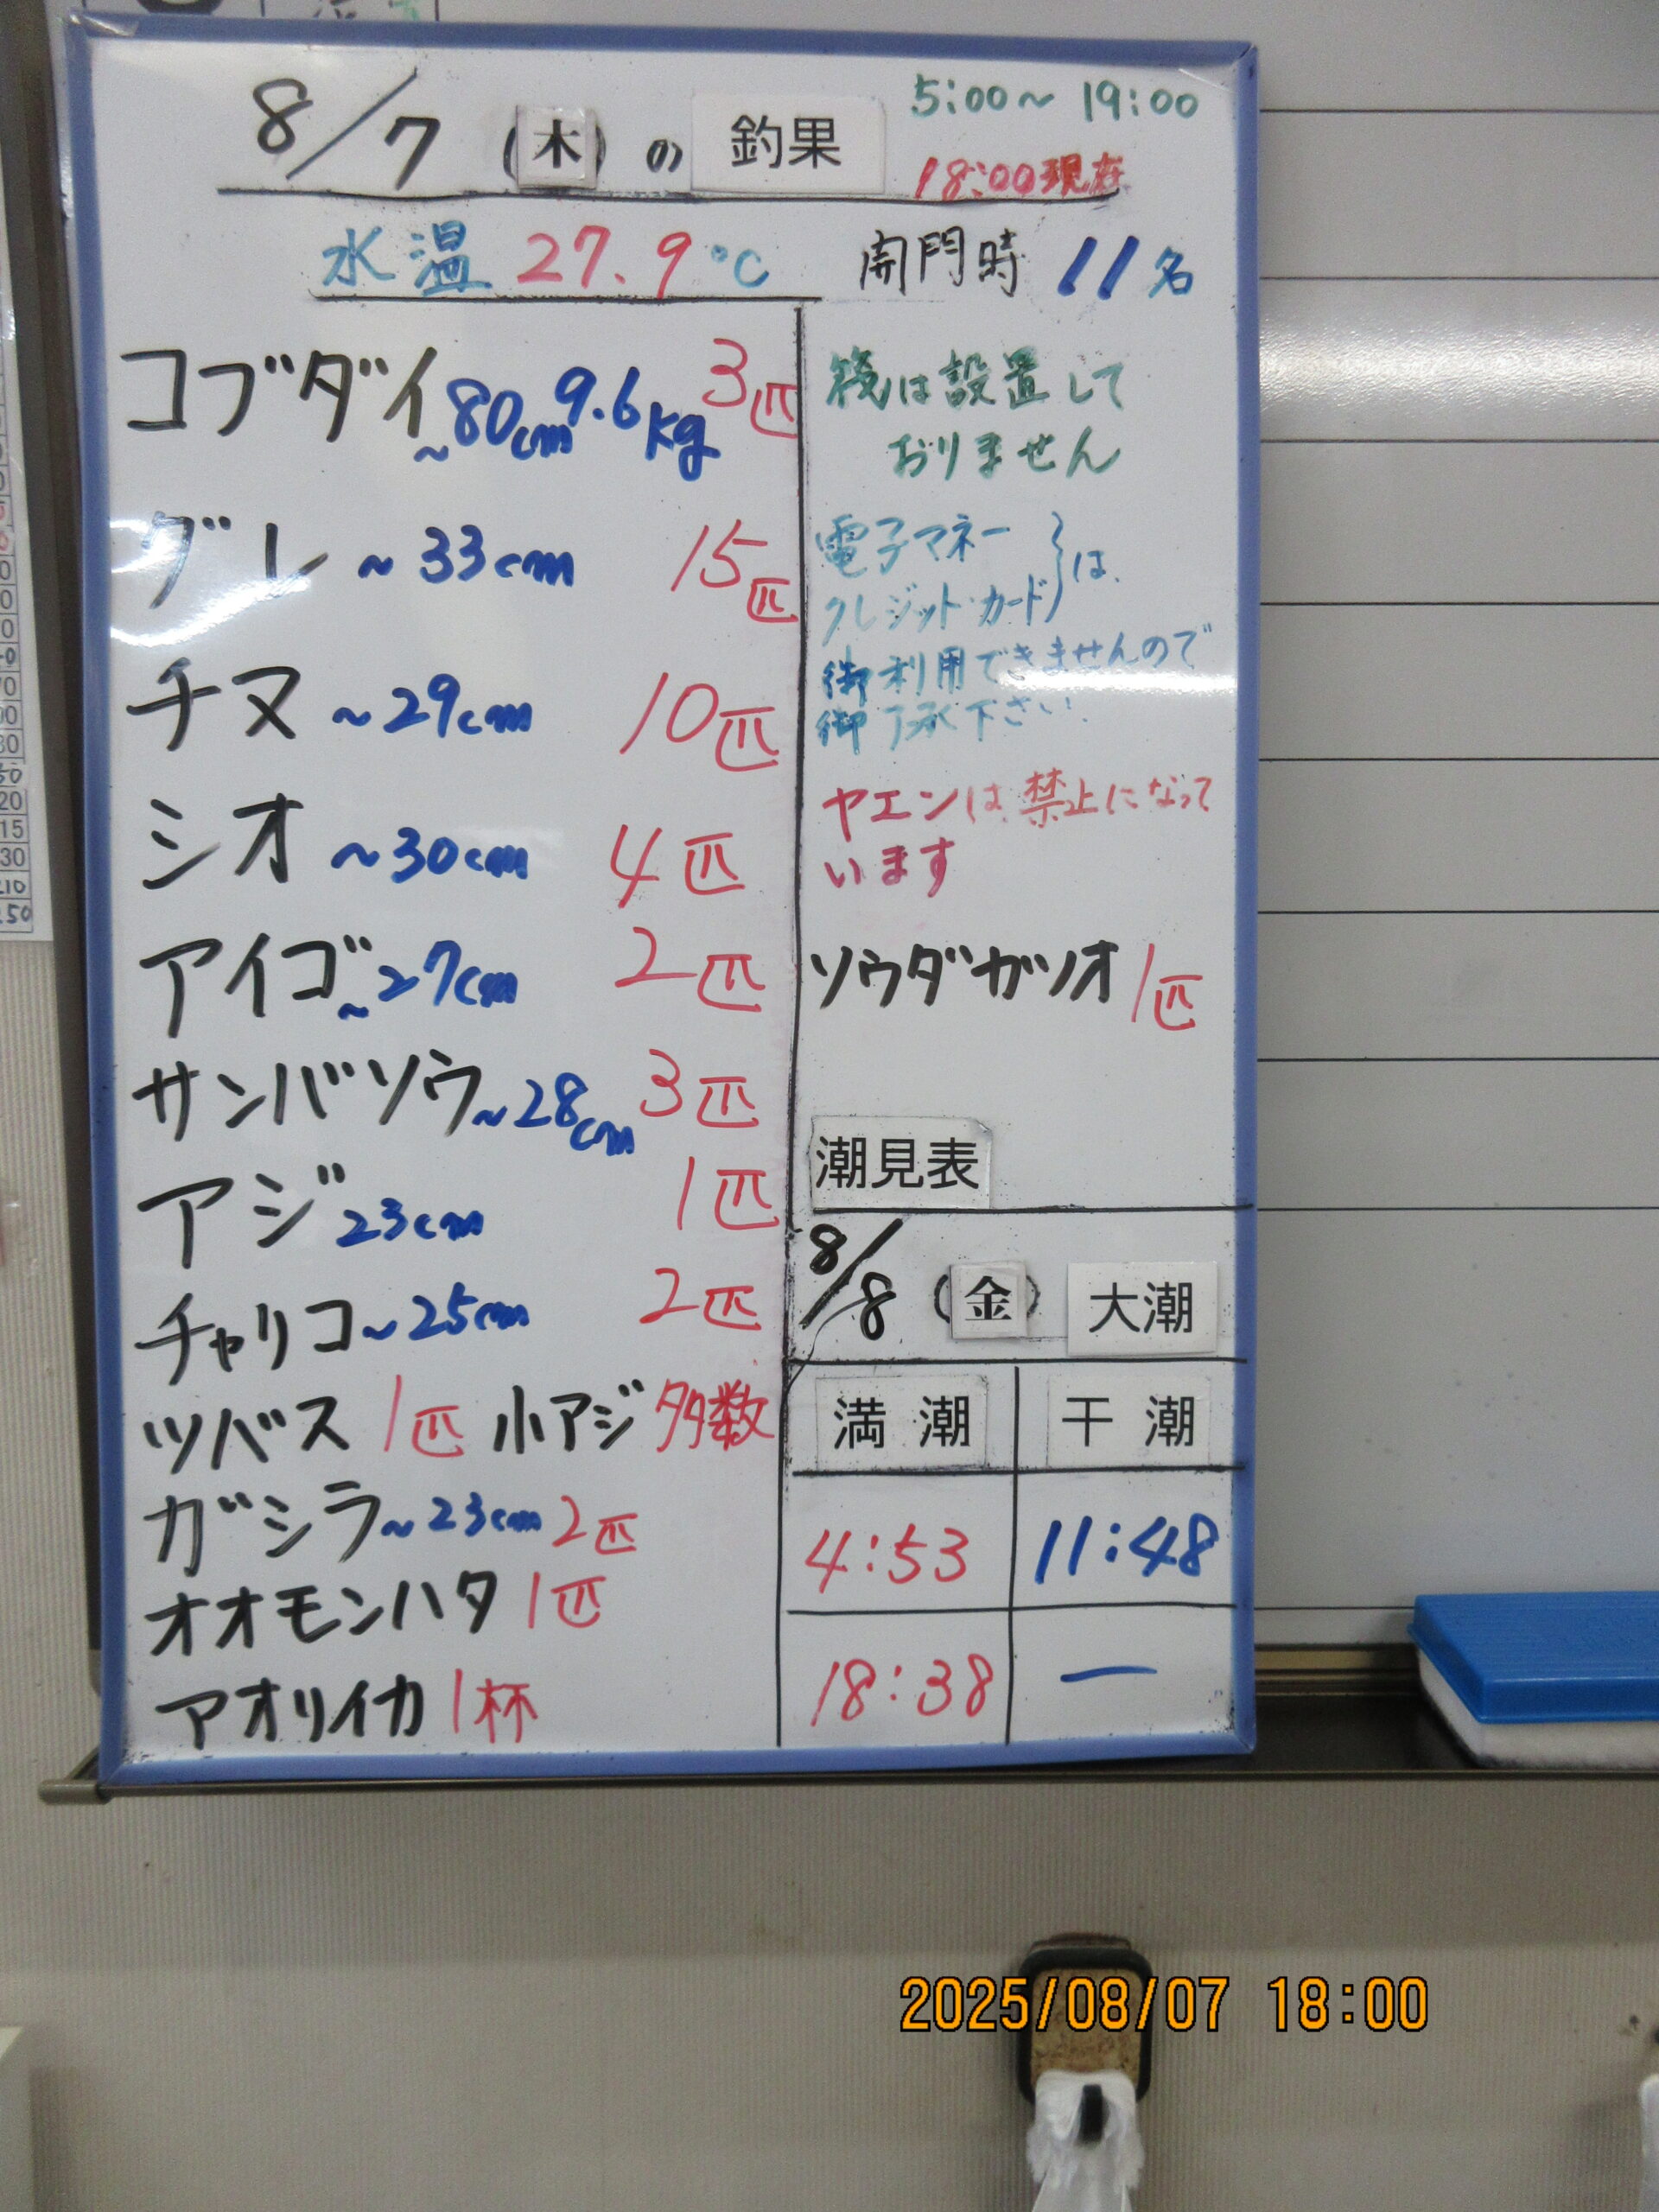 8/7 (木) の 釣果
5:00～19:00
18:00現在
水温 27.9℃
開門時 11名
コブダイ ~80cm 9.6kg 3匹
グレ ~33cm 15匹
チヌ ~29cm 10匹
シオ ~30cm 4匹
アイゴ ~27cm 2匹
サンバソウ ~28cm 3匹
アジ 23cm 1匹
チャリコ ~25cm 2匹
ツバス 1匹 小アジ 多数
ガシラ ~23cm 2匹
オオモンハタ 1匹
アオリイカ 1杯
筏は設置して
おりません
電子マネー
クレジット・カード } は
御利用できませんので
御了承下さい.
ヤエンは禁止になって
います
ソウダガツオ 1匹
潮見表
8/8 (金) 大潮
満潮 干潮
4:53 11:48
18:38 —
2025/08/07 18:00